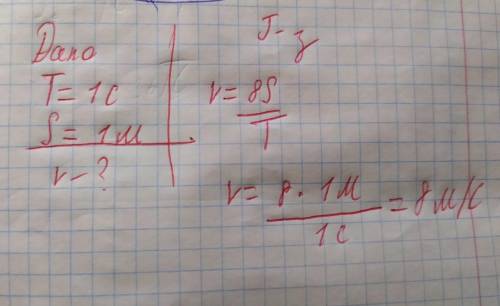 Дано
T = 1c
S = 1м
v - ?
J - з
v = 8S
T
v = 8 · 1м
1c
= 8 м/с